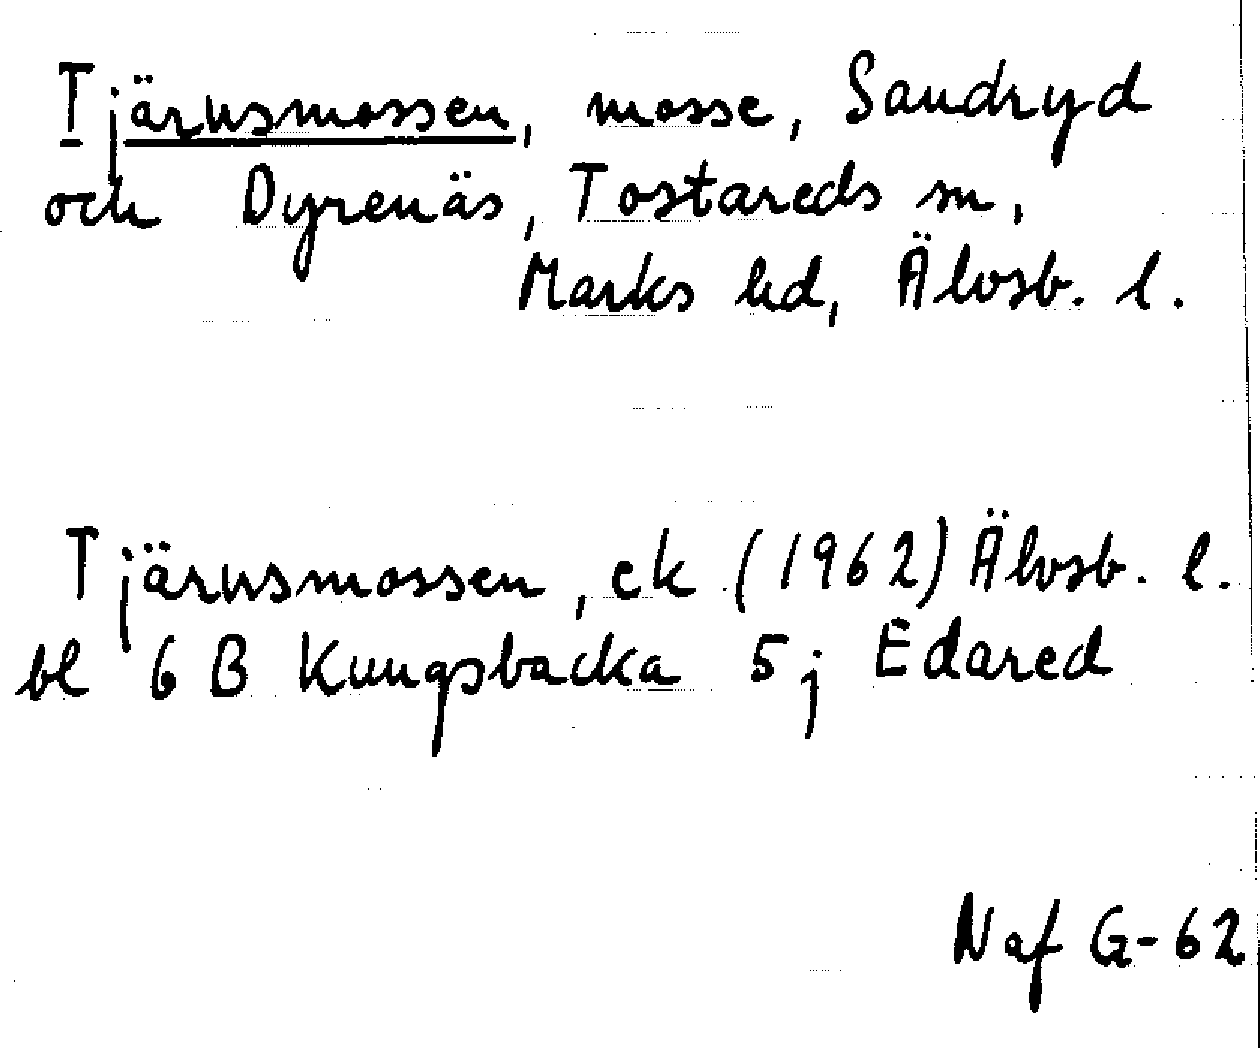 Tjärnsmossen, mosse, Sandryd
och Dyrenäs, Tostareds sn,
Marks hd, Älvsb. l.
Tjärnsmossen, ek (1962) Älvsb. l.
bl 6 B Kungsbacka 5 j Edared
Naf G-62